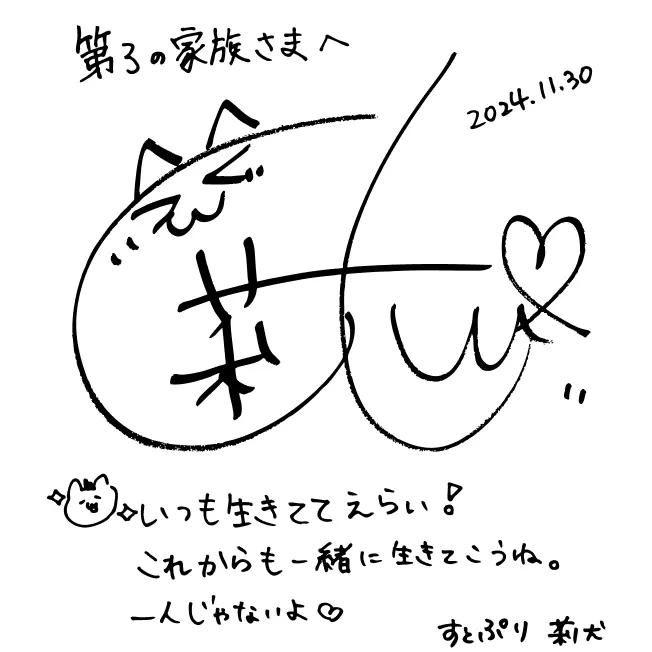 第3の家族さまへ
2024.11.30
莉
いつも生きててえらい!
これからも一緒に生きてこうね。
一人じゃないよ♡
すとぷり 莉犬